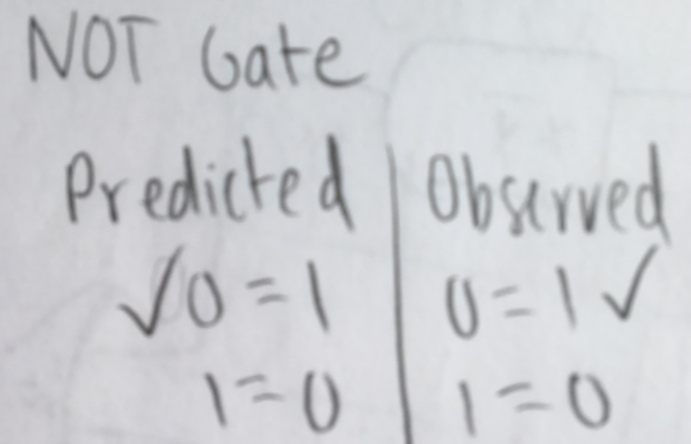 NOT Gate
Predicted | Observed
✓0 = 1 | 0 = 1 ✓
1 = 0 | 1 = 0